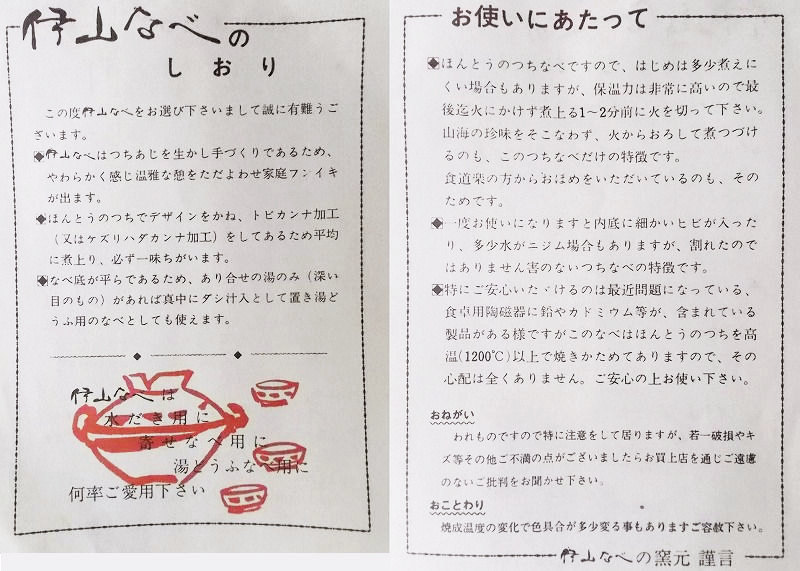 伊山なべの
しおり
この度伊山なべをお選び下さいまして誠に有難うご
ざいます。
◆伊山なべはつちあじを生かし手づくりであるため、
やわらかく感じ温雅な憩をただよわせ家庭フンイキ
が出ます。
◆ほんとうのつちでデザインをかね、トビカンナ加工
（又はケズリハダカンナ加工）をしてあるため平均
に煮上り、必ず一味ちがいます。
◆なべ底が平らであるため、あり合せの湯のみ（深い
目のもの）があれば真中にダシ汁入として置き湯ど
うふ用のなべとしても使えます。
伊山なべは
水だき用に
寄せなべ用に
湯どうふなべ用に
何率ご愛用下さい
お使いにあたって
◆ほんとうのつちなべですので、はじめは多少煮えに
くい場合もありますが、保温力は非常に高いので最
後迄火にかけず煮上る1~2分前に火を切って下さい。
山海の珍味をそこなわず、火からおろして煮つづけ
るのも、このつちなべだけの特徴です。
食道楽の方からおほめをいただいているのも、その
ためです。
◆一度お使いになりますと内底に細かいヒビが入った
り、多少水がニジム場合もありますが、割れたので
はありません害のないつちなべの特徴です。
◆特にご安心いたゞけるのは最近問題になっている、
食卓用陶磁器に鉛やカドミウム等が、含まれている
製品がある様ですがこのなべはほんとうのつちを高
温(1200℃)以上で焼きかためてありますので、その
心配は全くありません。ご安心の上お使い下さい。
おねがい
われものですので特に注意をして居りますが、若一破損やキ
ズ等その他ご不満の点がございましたらお買上店を通じご遠慮
のないご批判をお聞かせ下さい。
おことわり
焼成温度の変化で色具合が多少変る事もありますご容赦下さい。
伊山なべの窯元 謹言